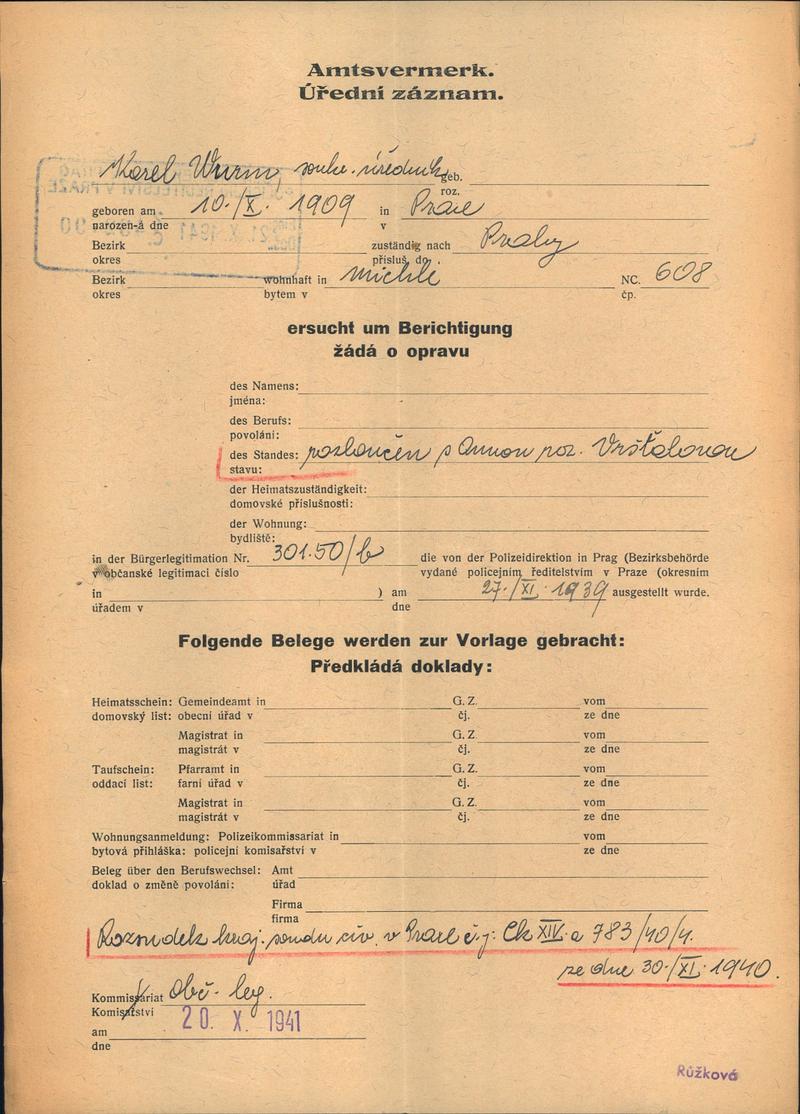 Amtsvermerk.
Úřední záznam.
Karel Wurm, soukr. úředník geb.
roz.
geboren am 10./X. 1909 in Praze
narozen-á dne v
Bezirk zuständig nach Prahy
okres přísluš. do
Bezirk wohnhaft in Michle NC. 608
okres bytem v čp.
ersucht um Berichtigung
žádá o opravu
des Namens:
jména:
des Berufs:
povolání:
des Standes: rozloučen s Annou roz. Vršťalovou
stavu:
der Heimatszuständigkeit:
domovské příslušnosti:
der Wohnung:
bydliště:
in der Bürgerlegitimation Nr. 301.50/b die von der Polizeidirektion in Prag (Bezirksbehörde
v občanské legitimaci číslo vydané policejním ředitelstvím v Praze (okresním
in ) am 27./XI. 1939 ausgestellt wurde.
úřadem v dne
Folgende Belege werden zur Vorlage gebracht:
Předkládá doklady:
Heimatsschein: Gemeindeamt in G. Z. vom
domovský list: obecní úřad v čj. ze dne
Magistrat in G. Z. vom
magistrát v čj. ze dne
Taufschein: Pfarramt in G. Z. vom
oddací list: farní úřad v čj. ze dne
Magistrat in G. Z. vom
magistrát v čj. ze dne
Wohnungsanmeldung: Polizeikommissariat in vom
bytová přihláška: policejní komisařství v ze dne
Beleg über den Berufswechsel: Amt
doklad o změně povolání: úřad
Firma
firma
Rozsudek kraj. soudu civ. v Praze č.j: Ck XIV. a 783/40/4.
ze dne 30./XI. 1940.
Kommissariat Obč. leg.
Komisařství
am 20. X. 1941
dne
Růžková